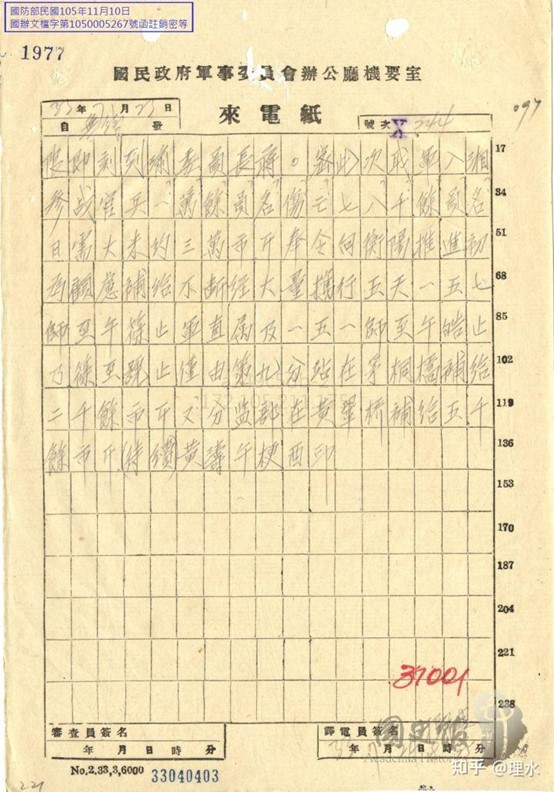 國防部民國105年11月10日
國辦文檔字第1050005267號函註銷密等
1977
國民政府軍事委員會辦公廳機要室
33年7月23日
自 發
來電紙
號次 X 2244
097
即刻到渝委員長蔣。密此次職軍入湘 17
參战官兵一萬餘員名傷亡七八千餘員名 34
日需大米約三萬市斤奉令向衡陽推進初 51
為顧慮補給不斷經大量攜行五天一五七 68
師至午篠止軍直属及一五一師至午皓止 85
乃篠至 止僅由第九分站在茅桐橋補給 102
二千餘市斤又分监部在黃 橋補給五千 119
餘市斤(待續)黃濤午梗西印 136
153
170
187
204
221
238
37001
審查員簽名
年 月 日 時 分
譯電員簽名
年 月 日 時 分
No.2,33,3,6000 33040403
國史館
Academia Historica
知乎 @理水
221